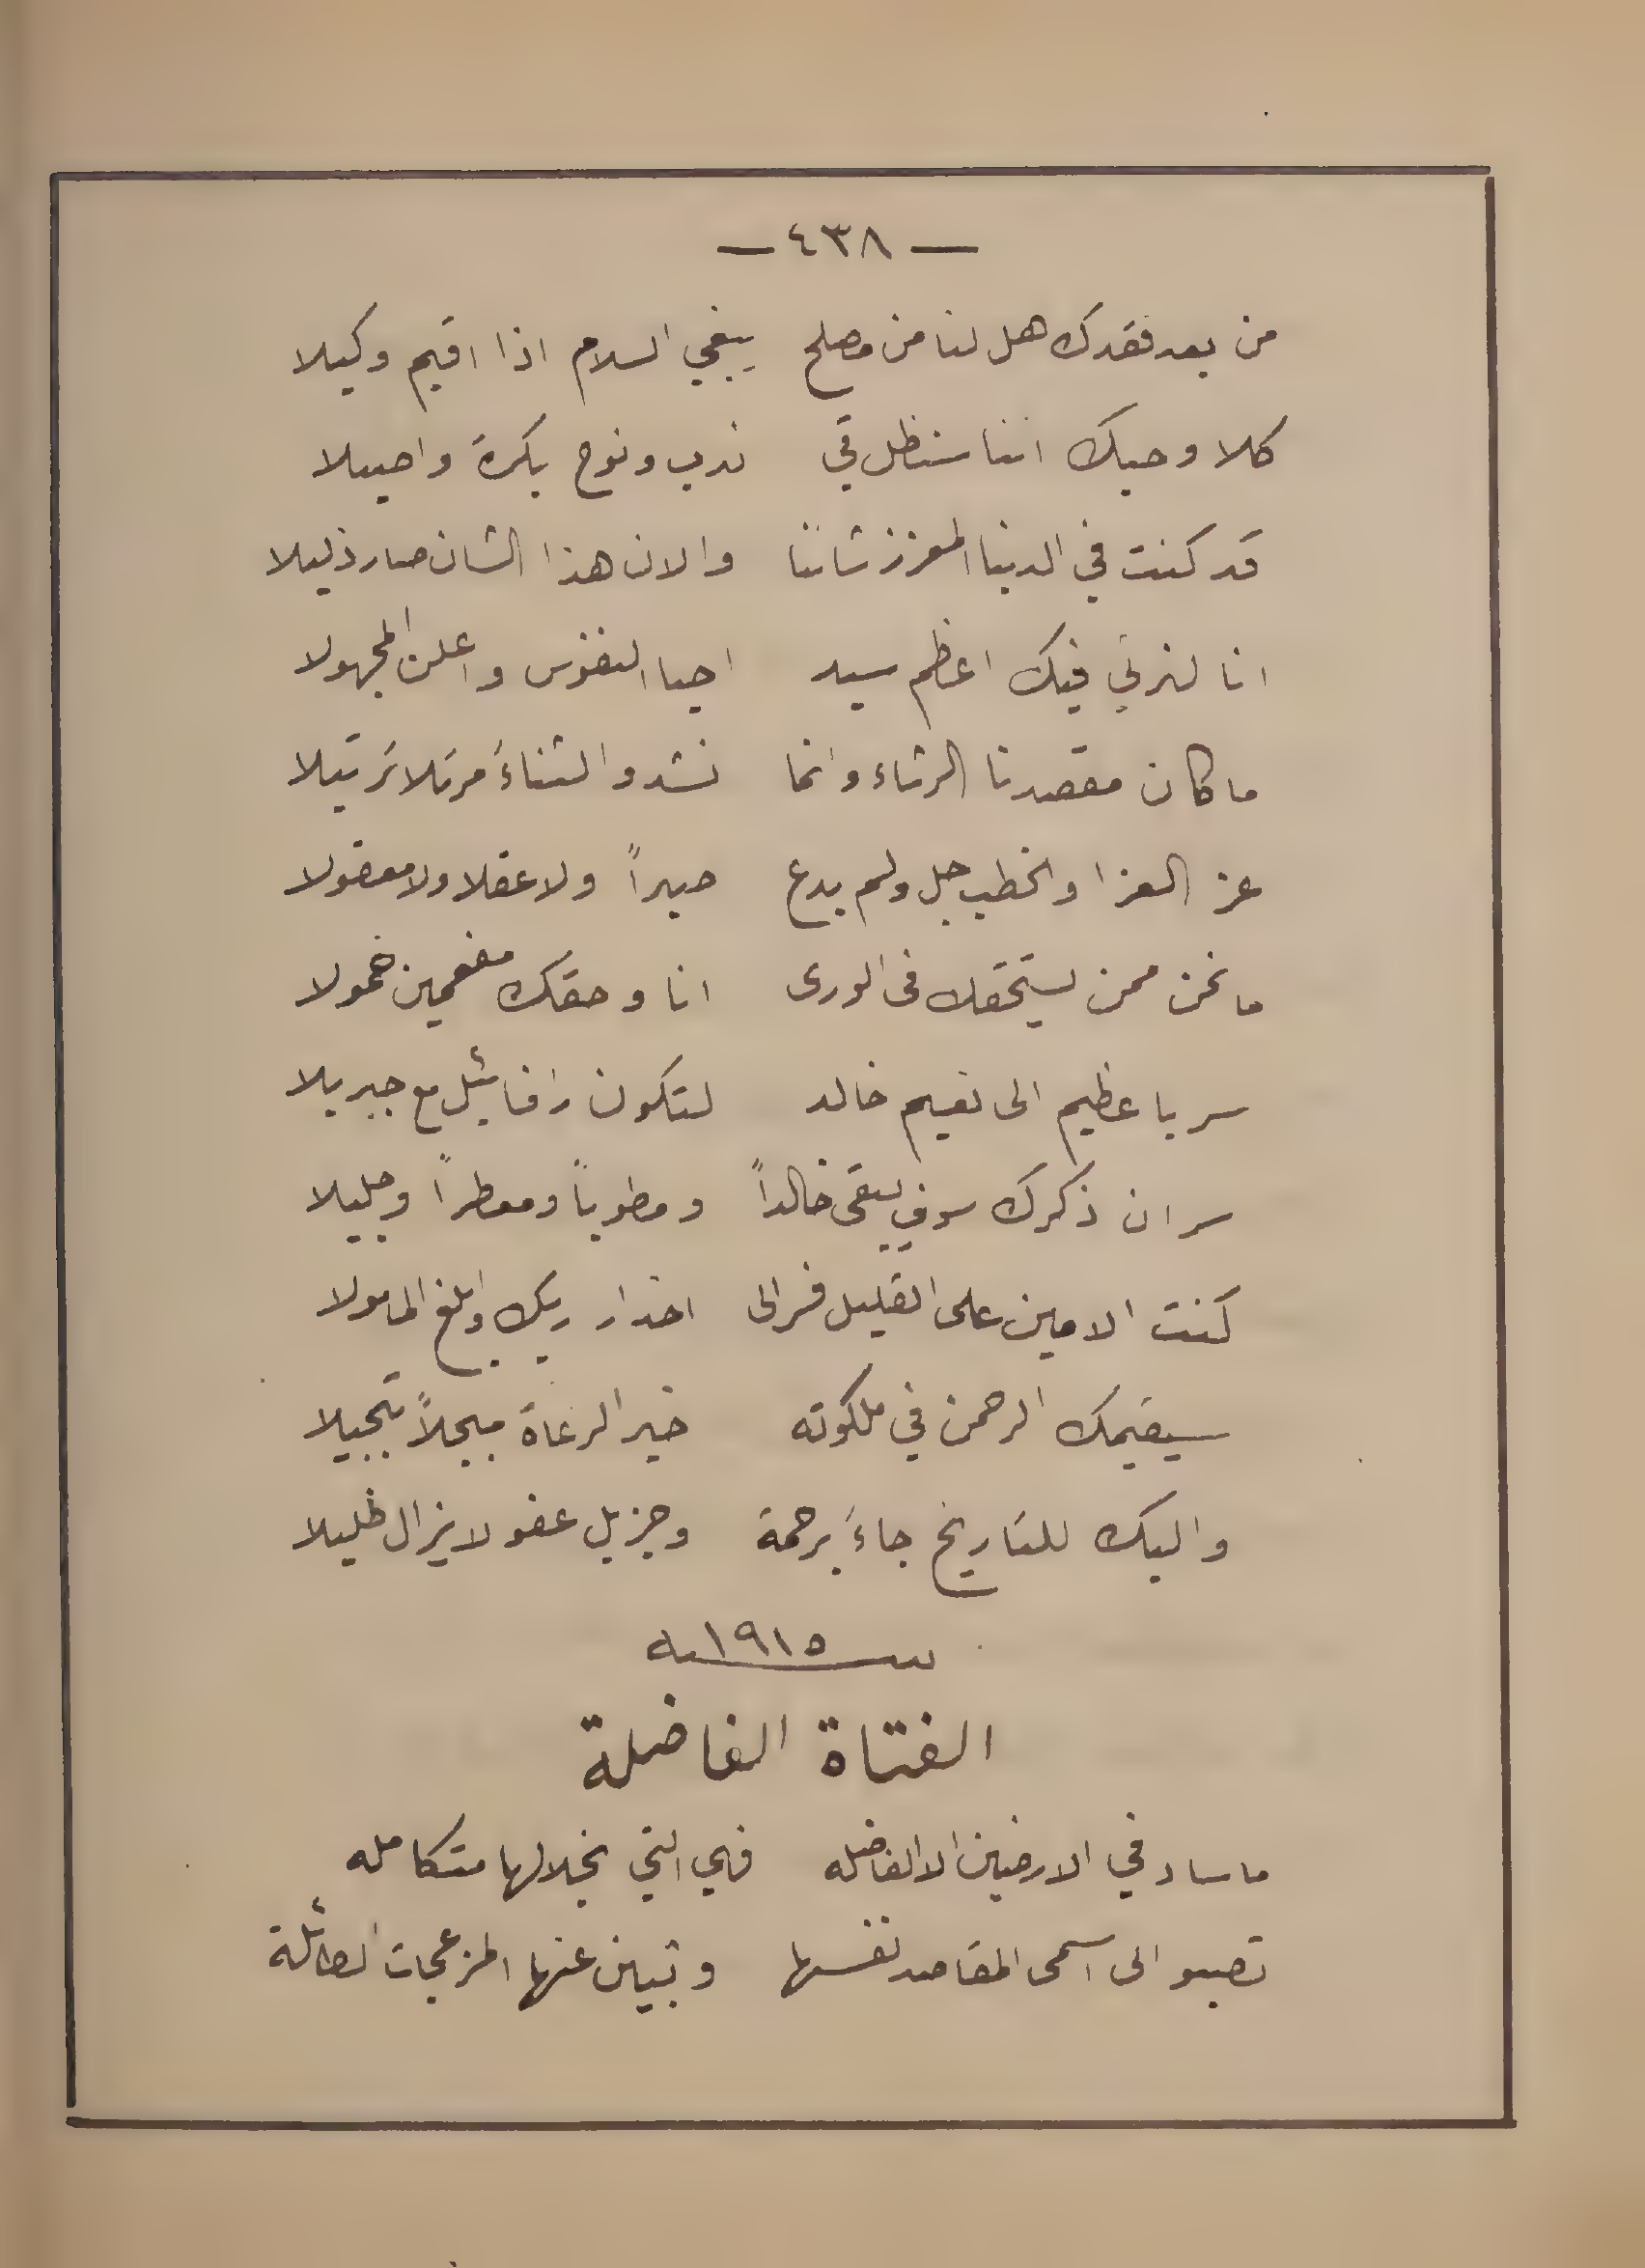 — ٤٣٨ —
من بعد فقدك هل لنا من مصلح يبغي السلام اذا اقيم وكيلا
كلا وحبك اننا سنظل في ندب ونوح بكرة واصيلا
قد كنت في الدنيا المعزز شاننا والان هذا الشان صار ذليلا
انا لنرثي فيك اعظم سيد احيا النفوس واعلن المجهولا
ما كان مقصدنا الرثاء وانما نشدو الثناءَ مرتلا ترتيلا
عز العزا والخطب جل ولم يدع صبراً ولا عقلا ولا معقولا
ما نحن ممن يستحقك في الورى انا وحقك مفعمين خمولا
سر يا عظيم الى نعيم خالد لتكون رافائيل مع جبريلا
سر ان ذكرك سوف يبقى خالداً ومطوباً ومعطراً وجليلا
كنت الامين على القليل فسر الى اخدار ربك وابلغ المامولا
سيقيمك الرحمن في ملكوته خير الرعاة مبجلاً تبجيلا
واليك للتاريخ جاءَ برحمة وجزيل عفو لا يزال ظليلا
سنة ١٩١٥
الفتاة الفاضلة
ما ساد في الارضين الا الفاضله فهي التي بخلالها متكامله
تصبو الى اسمى المقاصد نفسها وتبين عنها المزعجات الصائلة